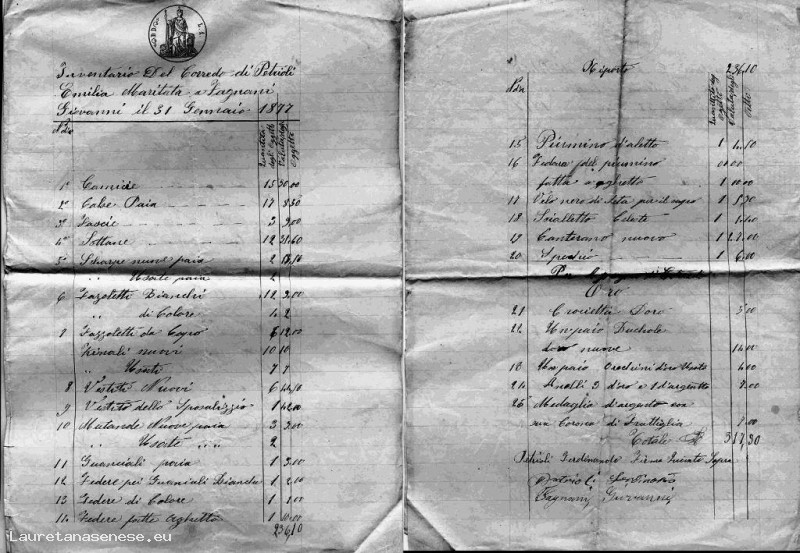 Inventario Del Corredo di Petrioli
Emilia Maritata a Fagnani
Giovanni il 31 Gennaio 1877
Quantità degli Ogetti
Valuta degli Oggetti
1° Camicie 15 30.00
2° Calse Paia 17 8.50
3° Fascie 3 3.00
4° Sottane 12 31.60
5° Scharpe nuove paia 2
" Usate paia 2
6 Fazoletti Bianchi 12 3.00
" di Colore 4 2
7 Fazzoletti da Capo 6 12.00
Zinali nuovi 10 10
" Usati 7 7
8 Vestiti Nuovi 6
9 Vestito dello Sposalizzio 1 42.00
10 Mutande Nuove paia 3 3.00
" Usate " " 2
11 Guanciali paia 1 3.00
12 Federe pei Guanciali Bianche 1 2.00
13 Federe di Colore 1 1.00
14 Federe fatte aghetto 1 10.00
236.10
Riporto 236.10
15 Piumino d'aletto 1
16 Federa pel piumino
fatta a aghetto 1 10.00
17 Velo nero di Seta per il capo 1
18 Scialletto 1
19 Canterano nuovo 1
20 Specio 1 6.00
Oro
21 Crocietta Doro
22 Un paio Buchole
doro nuove 14.00
Un paio Orecchini doro Usate 4.00
24 Anelli 3 d'oro e 1 d'argento
25 Medaglia d'argento con
una Corona di
Totale 317.30
Petrioli Ferdinando
Fagnani Giovanni
Lauretanasenese.eu